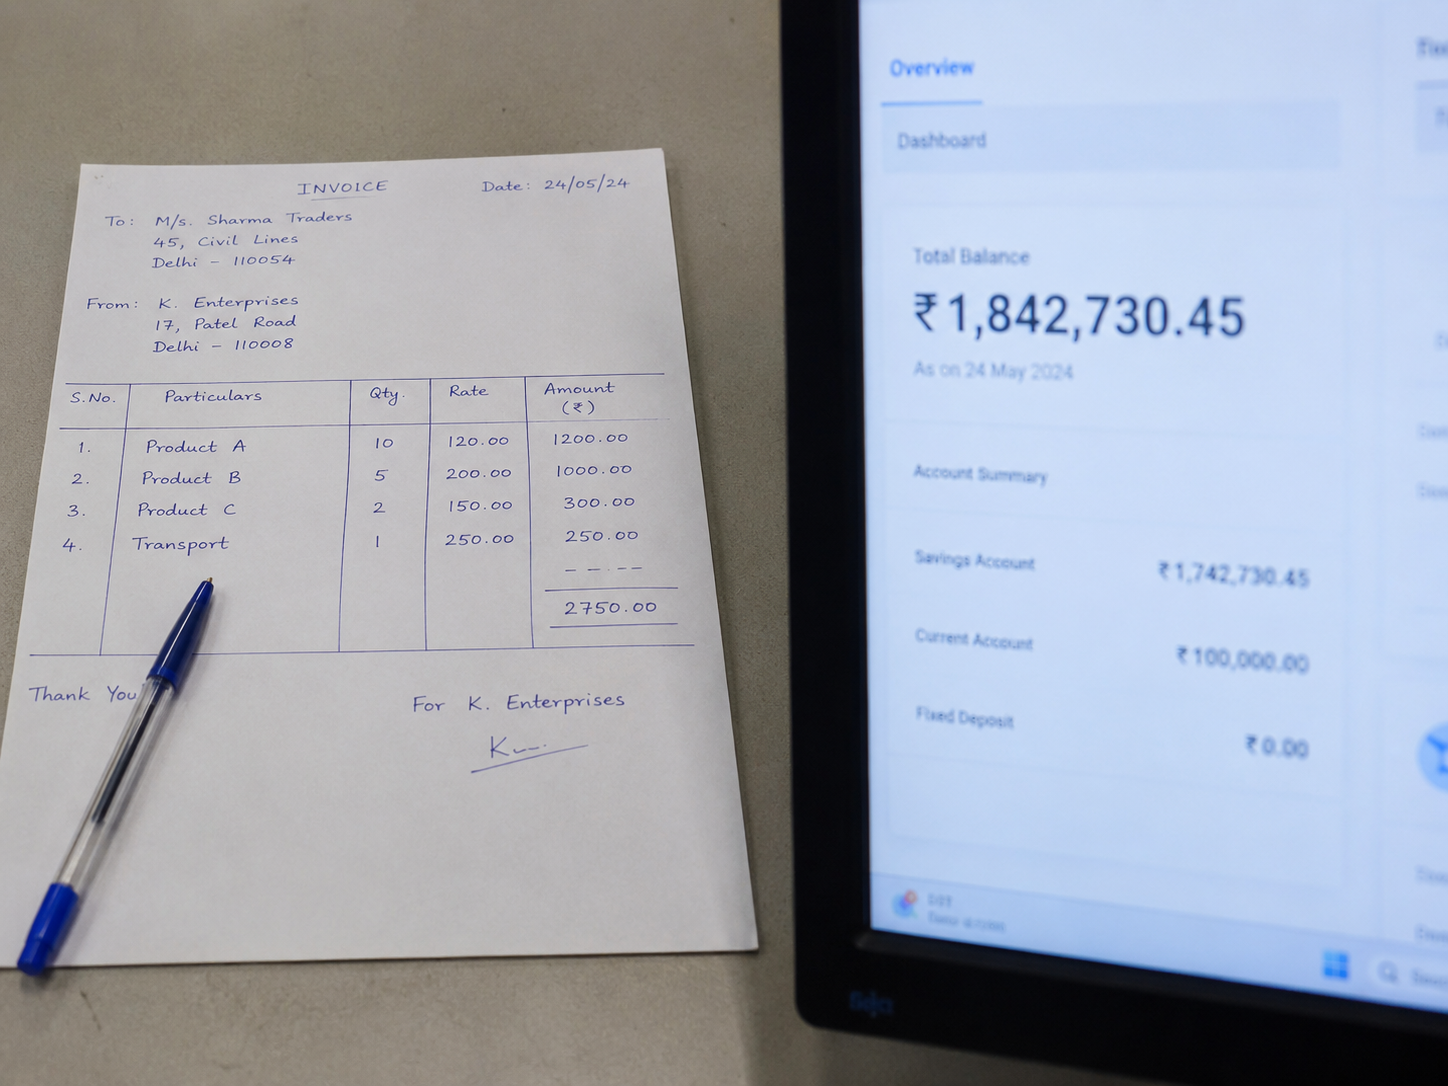 INVOICE Date: 24/05/24
To: M/s. Sharma Traders
45, Civil Lines
Delhi - 110054
From: K. Enterprises
17, Patel Road
Delhi - 110008
S.No. Particulars Qty. Rate Amount
(₹)
1. Product A 10 120.00 1200.00
2. Product B 5 200.00 1000.00
3. Product C 2 150.00 300.00
4. Transport 1 250.00 250.00
2750.00
Thank You
For K. Enterprises
Overview
Dashboard
Total Balance
₹1,842,730.45
As on 24 May 2024
Account Summary
Savings Account ₹1,742,730.45
Current Account ₹100,000.00
Fixed Deposit ₹0.00